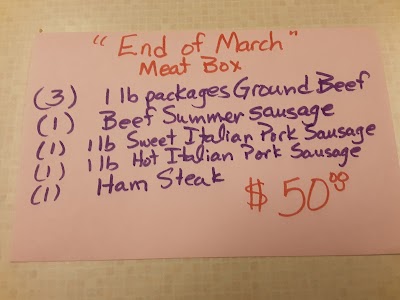 "End of March"
Meat Box
(3) 1 lb packages Ground Beef
(1) Beef Summer Sausage
(1) 1 lb Sweet Italian Pork Sausage
(1) 1 lb Hot Italian Pork Sausage
(1) Ham Steak
$ 50.00